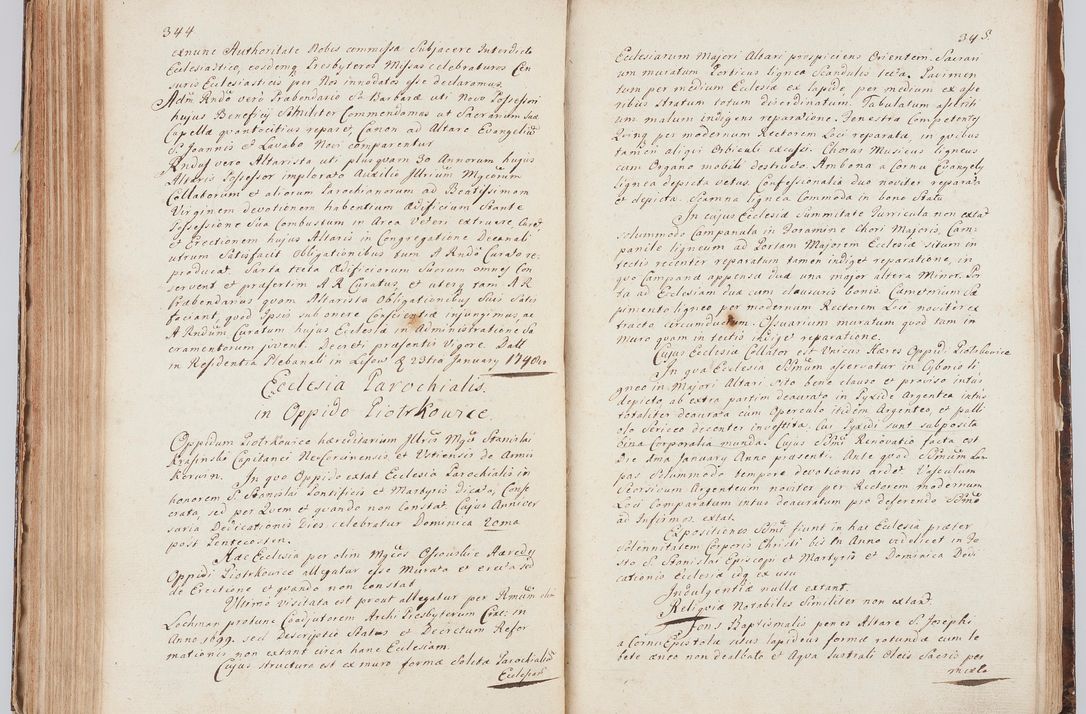 344
exnunc Authoritate Nobis commissa Subjacere Interdicto
Ecclesiastico, eosdemq Presbyteros Missas celebraturos Cen
suris Ecclesiasticis per Nos innodatos esse declaramus.
Admm Rndo vero Prabendario S. Barbaræ uti Novo Possessori
hujus Beneficij Similiter Commendamus ut Sacrarium suæ
Capellæ quantocitius reparet, Canon ad Altare Evangeliu
S. Joannis et Lavabo Novi comparentur
Rndus vero Altarista uti plusquam 30 Annorum hujus
Altaris Possessor implorato Auxilio Illrium Mgcorum
Collatorum et aliorum Parochianorum ad Beatissimam
Virginem devotionem habentium Ædificium Stante
Possessione Sua Combustum in Area Veteri extruere curet
et Erectionem hujus Altaris in Congregatione Decanali
utrum Satisfacit Obligationibus tum A Rndo Curatore
producat. Sarta tecta Ædificiorum Suorum omnes Con
servent et præsertim A R Curatus, et uterq tam A R
Præbendarius quam Altarista Obligationibus Suis Satis
faciant, quod ipsis sub onere Conscientiæ injungimus, ac
A Rndum Curatum hujus Ecclesiæ in Administratione Sa
cramentorum juvent. Decreti præsentis Vigore. Datt
in Residentia Plebanali in Lisow d 23tia January 1740
Ecclesia Parochialis.
in Oppido Piotrkowice.
Oppidum Piotrkowice hæreditarium Illris Mgci Stanislai
Krasinski Capitanei NeCorsinensis et Ustiensis de Armis
Korwin. In quo Oppido extat Ecclesia Parochialis in
honorem S. Stanislai Pontificis et Martyris dicata, Conse
crata, sed per Quem et quando non Constat. Cujus Anniver
saria Dedicationis Dies celebratur Dominica 20ma
post Pentecosten.
Hæc Ecclesia per olim Mgcos Ossowskie Hæredes
Oppidi Piotrkowice allegatur esse Murata et erecta sed
de Erectione et quando non constat
Ultimo Visitata est prout allegatur per Rmum olim
Lochman protunc Coadjutorem Archi Presbyterum Crac: in
Anno 1699. sed descriptio Status et Decretum Refor
mationis non extant circa hanc Ecclesiam.
Cujus structura est ex muro forma Solita Parochialiu
Ecclesiar
345
Ecclesiarum Majori Altari perspiciens Orientem. Sacrari
um muratum Porticus lignea Scandulis tecta. Pavimen
tum per medium Ecclesiæ ex lapide, per medium ex asse
ribus Stratum totum disordinatum. Tabulatum asseriti
um malum indigens reparatione. Fenestræ Competentes
Vitreæ per modernum Rectorem Loci reparatæ, in quibus
tamen aliqui Orbiculi excussi. Chorus Musicus ligneus
cum Organo mobili destructo. Ambona a Cornu Evangely
lignea depicta vetus. Confessionalia duo noviter reparata
et depicta. Scamna lignea Commoda in bono Statu
In cujus Ecclesiæ summitate Turricula non extat
solummodo Campanula in Foramine Chori Majoris. Cam=
panile ligneum ad Portam Majorem Ecclesiæ situm in
tectis recenter reparatum tamen indiget reparatione, in
quo Campanæ appensæ duæ una major altera Minor. Por
ta ad Ecclesiam duæ cum clausuris bonis. Cæmeterium Sæ
pimento ligneo per modernum Rectorem Loci noviter ex
tracto circumductum. Ossuarium muratum quod tam in
muro quam in tectis indiget reparatione.
Cujus Ecclesiæ Collator est Unicus Hæres Oppidi Piotrkowice
In qua Ecclesia SSmum asservatur in Cyborio li
gneo in Majori Altari Sito bene clauso et proviso intus
depicto ab extra partim deaurato in Pyxide Argentea intus
totaliter deaurata cum Operculo itidem Argenteo, et palli
olo Sericeo decenter investita. Cui Pyxidi sunt supposita
bina Corporalia munda. Cujus SSmi Renovatio facta est
Die 1ma January Anno præsenti. Ante quod SSmum Lam
pas Solummodo tempore devotionis ardet. Vasculum
Seorsivum Argenteum noviter per Rectorem modernum
Loci comparatum intus deauratum pro deferendo SSmo
ad Infirmos extat.
Expositiones SSmi fiunt in hac Ecclesia præter
Solennitatem Corporis Christi bis in Anno videlicet in Fe
sto S. Stanislai Episcopi et Martyris et Dominica Dedi
cationis Ecclesiæ idq ex usu
Indulgentiæ nullæ extant.
Reliquiæ Notabiles Similiter non extant
Fons Baptismalis penes Altare S. Josephi
a Cornu Epistolæ situs lapideus forma rotunda cum le
bete æneo non dealbato et Aqua lustrali Oleis Sacris per
mixta